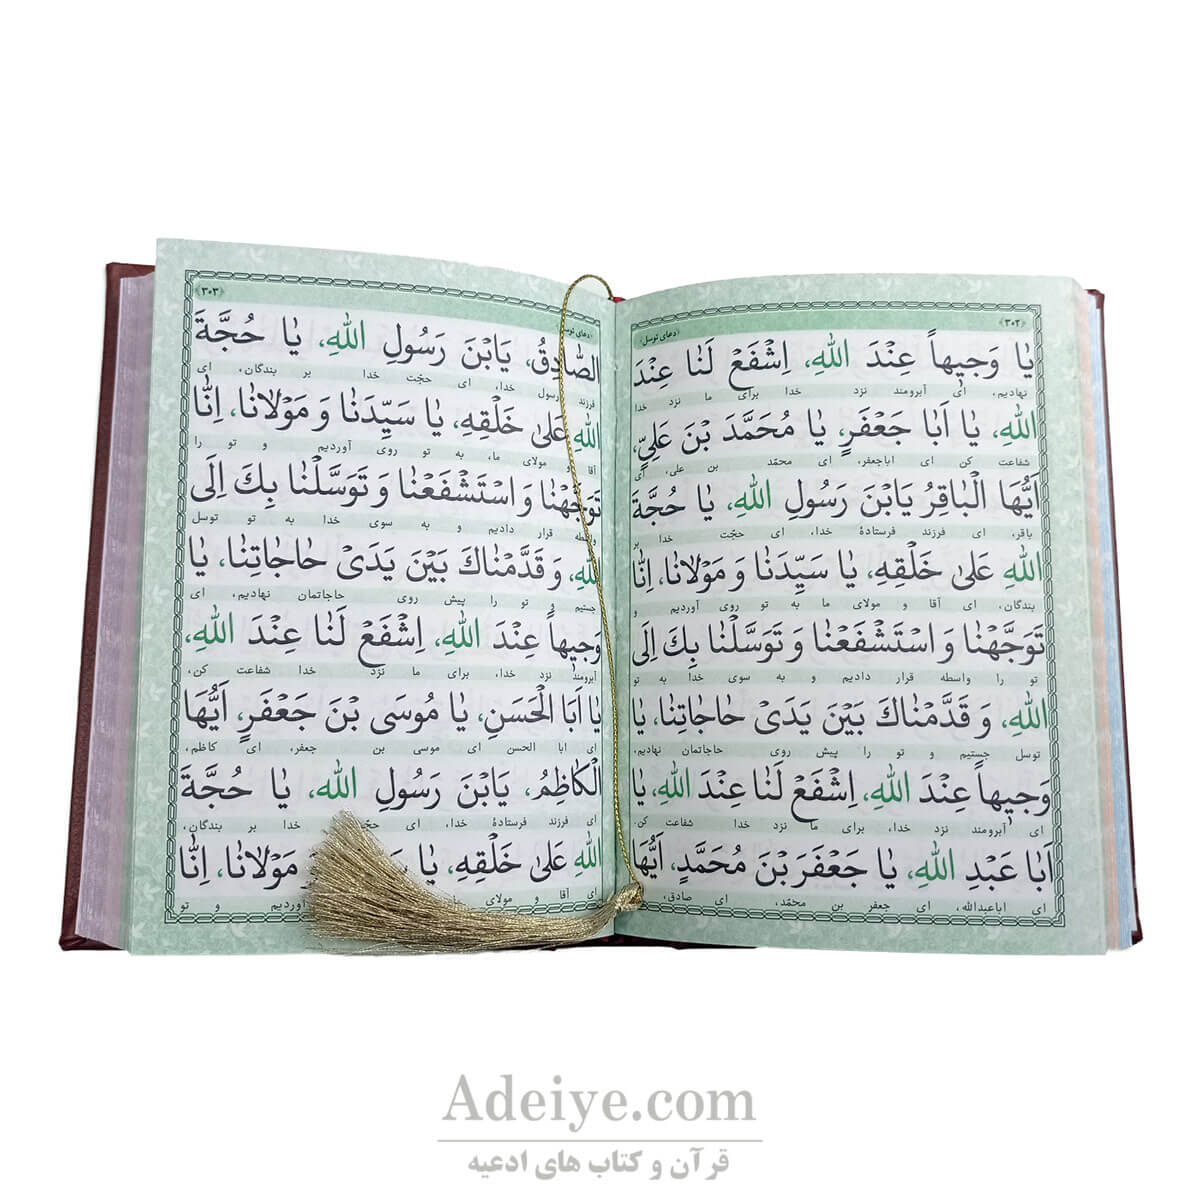 ﴿٣٠٢﴾
﴿دعای توسل﴾
یٰا وَجیهاً عِنْدَ اللهِ، اِشْفَعْ لَنٰا عِنْدَ
نهادیم، ای آبرومند نزد خدا برای ما نزد خدا
اللهِ، یٰا اَبٰا جَعْفَرٍ، یٰا مُحَمَّدَ بْنَ عَلِیٍّ،
شفاعت کن ای اباجعفر، ای محمّد بن علی، ای
اَیُّهَا الْبٰاقِرُ یَابْنَ رَسُولِ اللهِ، یٰا حُجَّةَ
باقر، ای فرزند فرستادهٔ خدا، ای حجّت خدا بر
اللهِ عَلیٰ خَلْقِهِ، یٰا سَیِّدَنٰا وَ مَوْلانٰا، اِنّٰا
بندگان، ای آقا و مولای ما به تو روی آوردیم و
تَوَجَّهْنٰا وَ اسْتَشْفَعْنٰا وَ تَوَسَّلْنٰا بِكَ اِلَی
تو را واسطه قرار دادیم و به سوی خدا به تو
اللهِ، وَ قَدَّمْنٰاكَ بَیْنَ یَدَیْ حٰاجٰاتِنٰا، یٰا
توسل جستیم و تو را پیش روی حاجاتمان نهادیم،
وَجیهاً عِنْدَ اللهِ، اِشْفَعْ لَنٰا عِنْدَ اللهِ، یٰا
ای آبرومند نزد خدا، برای ما نزد خدا شفاعت کن.
اَبٰا عَبْدِ اللهِ، یٰا جَعْفَرَ بْنَ مُحَمَّدٍ، اَیُّهَا
ای اباعبدالله، ای جعفر بن محمّد، ای صادق،
﴿دعای توسل﴾
﴿٣٠٣﴾
الصّٰادِقُ، یَابْنَ رَسُولِ اللهِ، یٰا حُجَّةَ
فرزند رسول خدا، ای حجّت خدا بر بندگان، ای
اللهِ عَلیٰ خَلْقِهِ، یٰا سَیِّدَنٰا وَ مَوْلانٰا، اِنّٰا
آقا و مولای ما، به تو روی آوردیم و تو را
تَوَجَّهْنٰا وَ اسْتَشْفَعْنٰا وَ تَوَسَّلْنٰا بِكَ اِلَی
واسطه قرار دادیم و به سوی خدا به تو توسل
اللهِ، وَ قَدَّمْنٰاكَ بَیْنَ یَدَیْ حٰاجٰاتِنٰا، یٰا
جستیم و تو را پیش روی حاجاتمان نهادیم، ای
وَجیهاً عِنْدَ اللهِ، اِشْفَعْ لَنٰا عِنْدَ اللهِ،
آبرومند نزد خدا، برای ما نزد خدا شفاعت کن،
یٰا اَبَا الْحَسَنِ، یٰا مُوسَی بْنَ جَعْفَرٍ، اَیُّهَا
ای ابا الحسن ای موسی بن جعفر، ای کاظم،
الْكٰاظِمُ، یَابْنَ رَسُولِ اللهِ، یٰا حُجَّةَ
ای فرزند فرستادهٔ خدا، ای خدا بر بندگان،
اللهِ عَلیٰ خَلْقِهِ، یٰا مَوْلانٰا، اِنّٰا
ای آقا و مولای آوردیم و تو
Adeiye.com
قرآن و کتاب های ادعیه